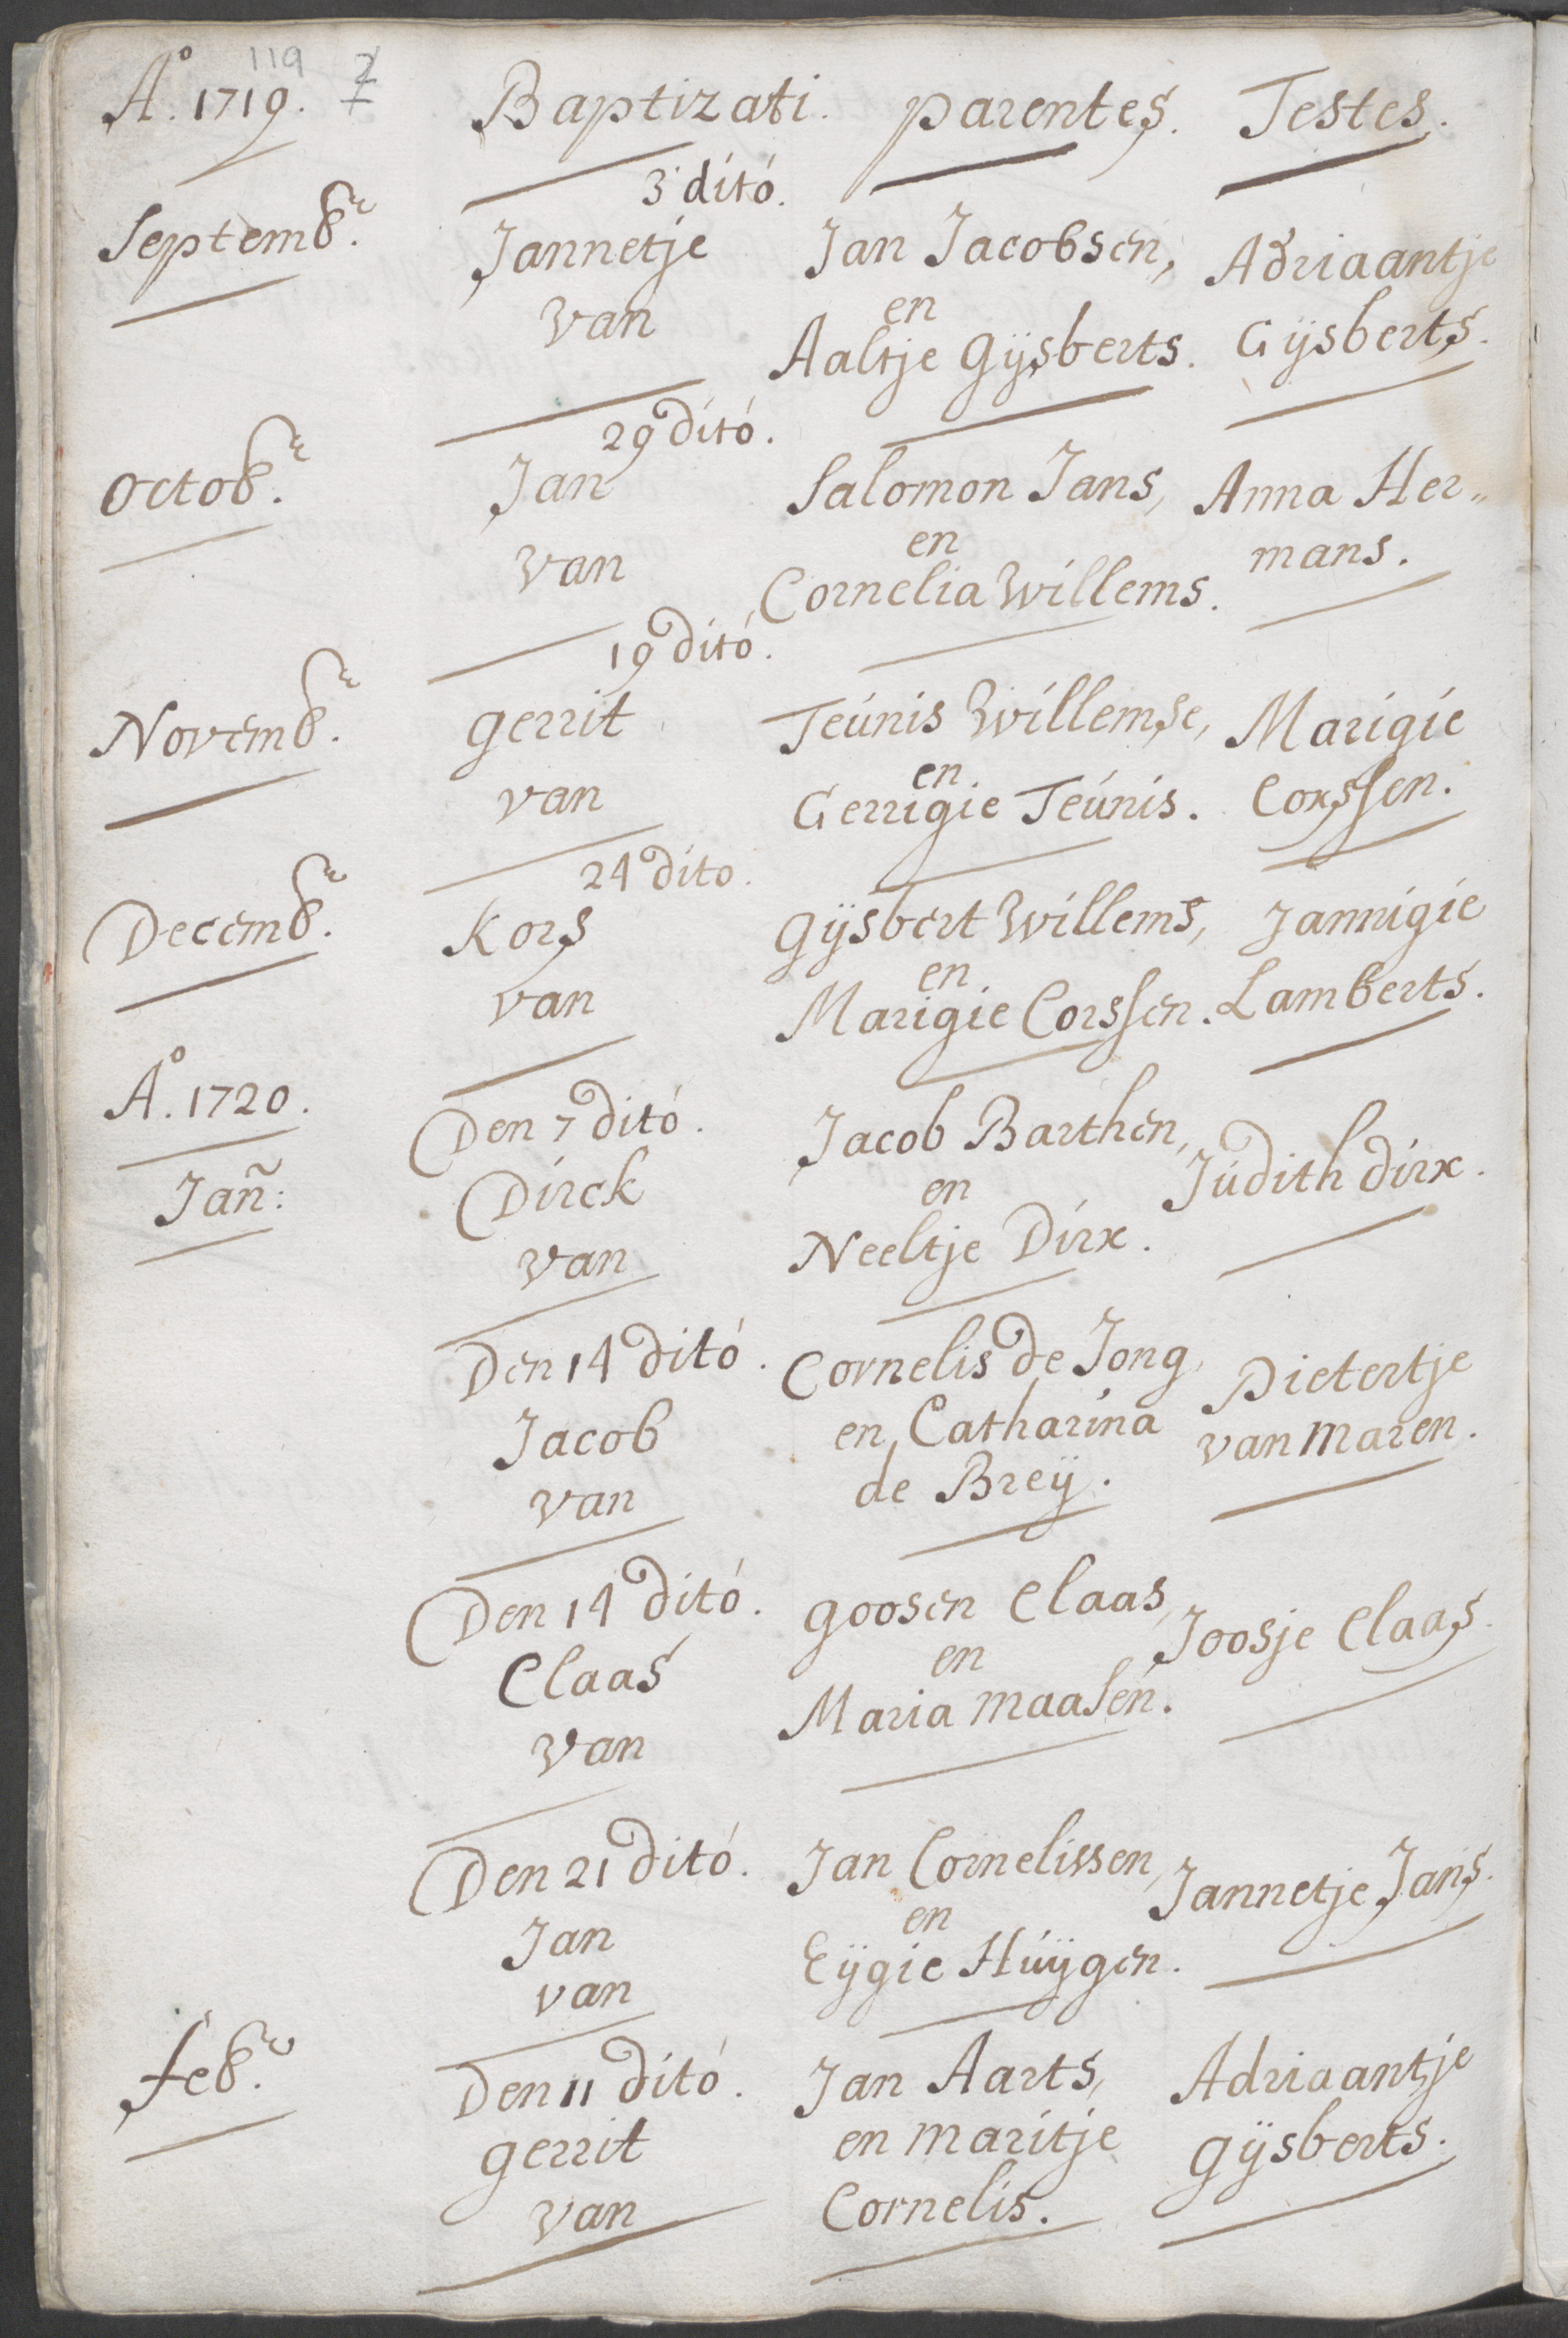 119 7
Aº. 1719. Baptizati. parentes. Testes.
3 ditó.
Septembr. Jannetje Jan Jacobsen, Adriaantje
van en Gijsberts.
Aaltje Gijsberts.
29 ditó.
Octobr. Jan Salomon Jans, Anna Her„
van en mans.
Cornelia Willems.
19 ditó.
Novembr. gerrit Teúnis Willemse, Marigie
van en Corssen.
Gerrigie Teúnis.
24 dito.
Decembr. Kors Gijsbert Willems, Jannigie
van en Lamberts.
Marigie Corssen.
Aº. 1720.
Den 7 ditó. Jacob Barthen,
Jañ: Dirck en Júdith dirx.
van Neeltje Dirx.
Den 14 ditó. Cornelis de Jong, Pietertje
Jacob en Catharina van Maren.
van de Breij.
Den 14 ditó. goosen Claas, Joosje Claas.
Claas en
van Maria Maasen.
Den 21 ditó. Jan Cornelissen, Jannetje Jans.
Jan en
van Eijgie Húijgen.
febr. Den 11 ditó. Jan Aarts, Adriaantje
gerrit en maritje gijsberts.
van Cornelis.